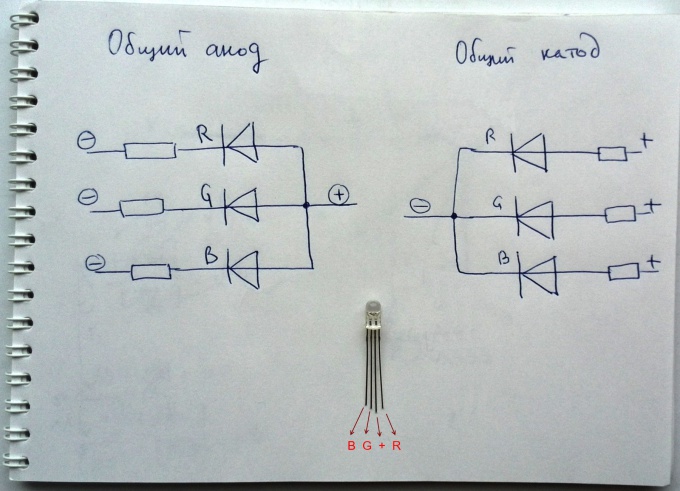 Общий анод
Общий катод
⊖ R
⊖ G ⊕
⊖ B
R +
⊖ G +
B +
B G + R